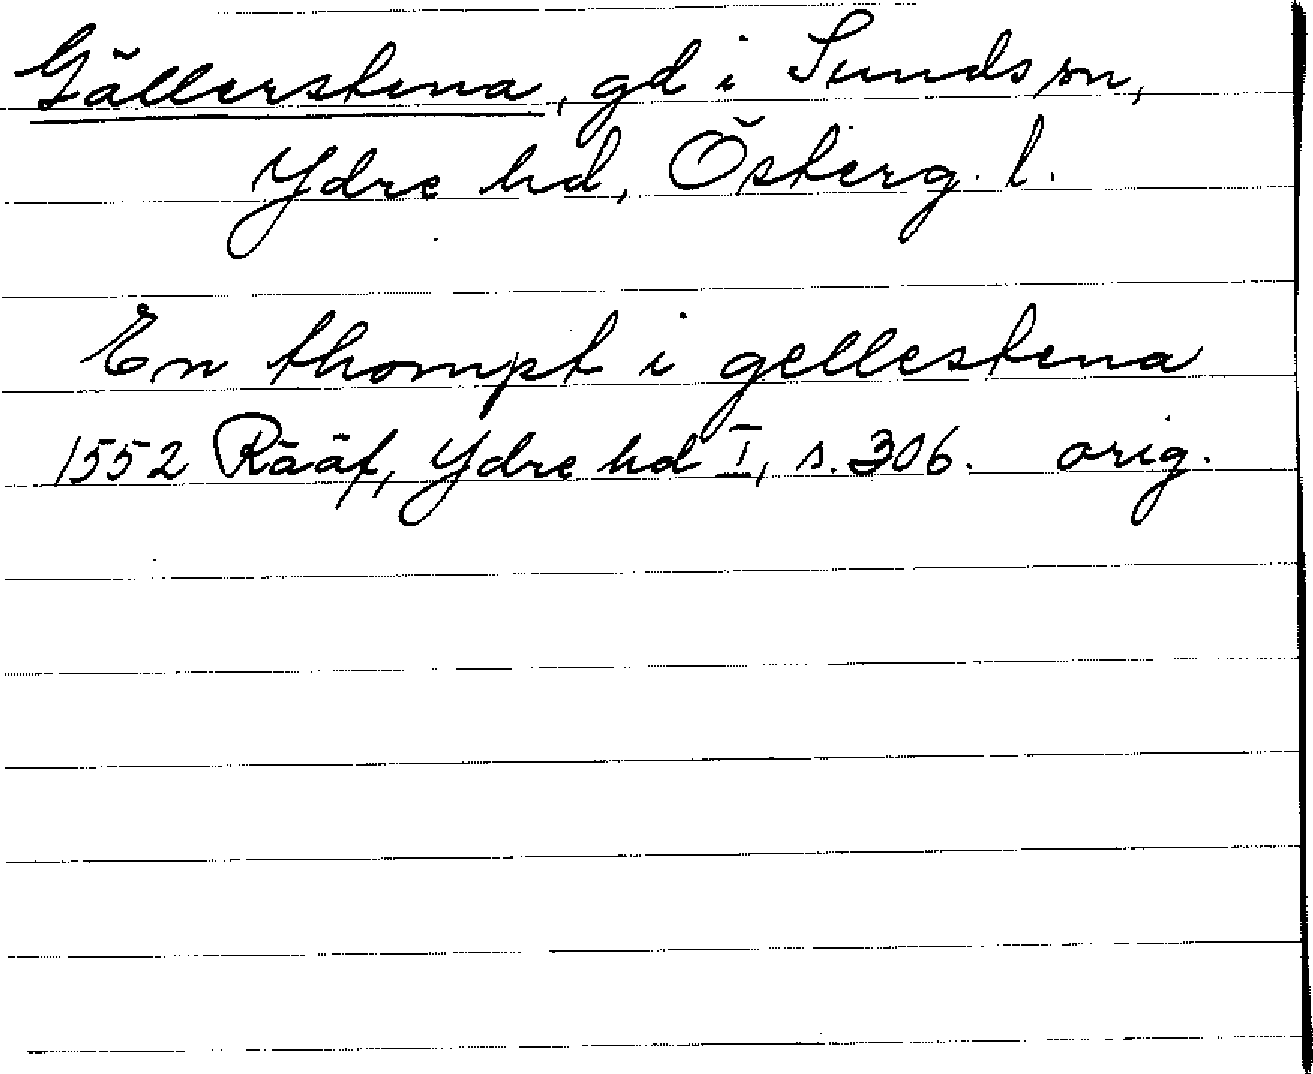 Gällerstena, gd i Sunds sn,
Ydre hd, Österg. l.
En thompt i gellestena
1552 Rääf, Ydre hd I, s. 306. orig.